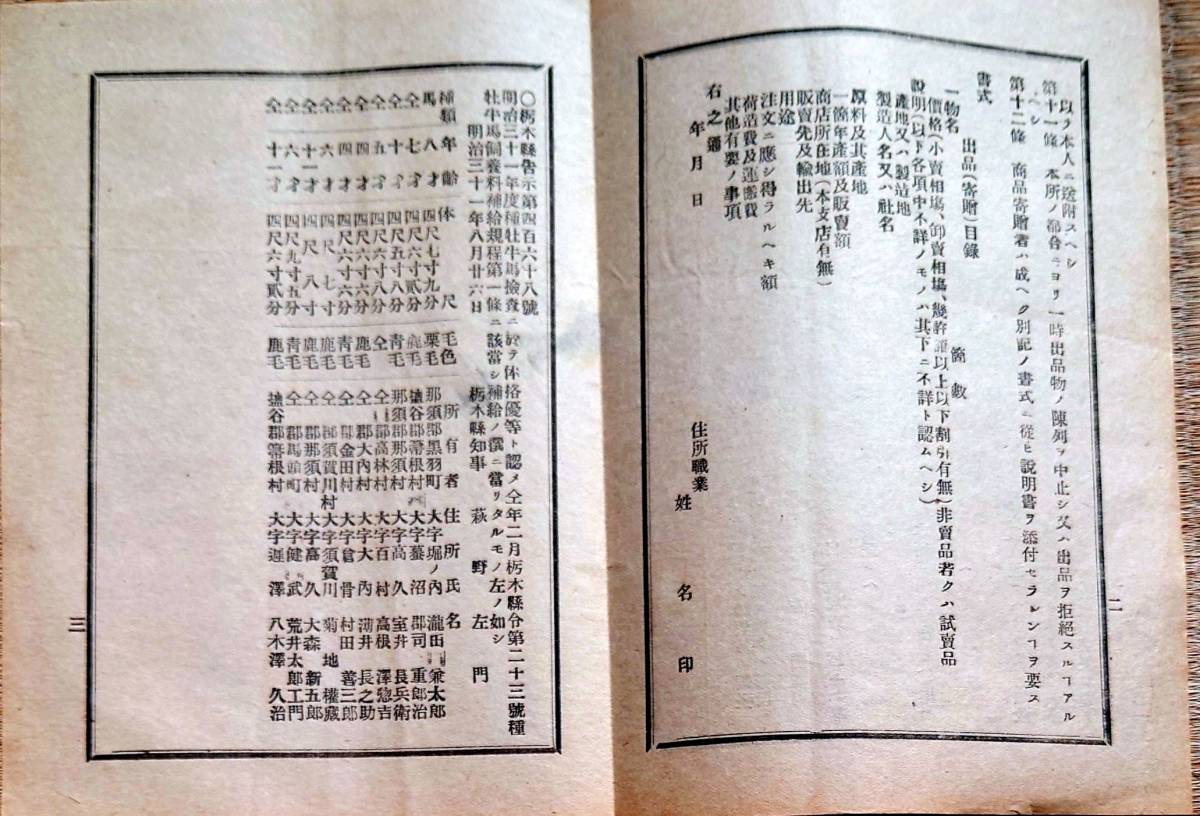 以テ本人ニ送附スヘシ
第十一條 本所ノ都合ニヨリ一時出品物ノ陳列ヲ中止シ又ハ出品ヲ拒絶スルヿアル
ヘシ
第十二條 商品寄贈者ハ成ヘク別記ノ書式ニ從ヒ說明書ヲ添付セラレンヿヲ要ス
書式
出品(寄贈)目錄
一物名 箇數
價格(小賣相塲、卸賣相塲、幾許額以上以下割引有無)非賣品若クハ試賣品
說明(以下各項中不詳ノモノハ其下ニ不詳ト認ムヘシ)
產地又ハ製造地
製造人名又ハ社名
原料及其產地
一箇年產額及販賣額
商店所在地(本支店有無)
販賣先及輸出先
用途
注文ニ應シ得ラルヘキ額
荷造費及運搬費
其他有要ノ事項
右之通
年 月 日 住所職業
姓 名 印
二
〇栃木縣告示第四百六十八號
明治三十一年度種牡牛馬撿查ニ於テ体格優等ト認メ仝年二月栃木縣令第二十三號種
牡牛馬飼養料補給規程第一條ニ該當シ補給ノ撰ニ當リタルモノ左ノ如シ
明治三十一年八月廿六日 栃木縣知事 萩野左門
種類 年齡 体尺 毛色 所有者住所氏名
馬 八才 四尺七寸九分 栗毛 那須郡黑羽町 大字堀ノ內 瀧田兼太郎
仝 七才 四尺六寸貳分 鹿毛 塩谷郡箒根村 大字蟇沼 郡司重郎治
仝 十才 四尺五寸八分 靑毛 那須郡那須村 大字高久 室井長兵衛
仝 五才 四尺六寸八分 仝 仝郡高林村 大字百村 高根澤惣吉
仝 四才 四尺六寸六分 鹿毛 仝郡大內村 大字大內 薄井長之助
仝 四才 四尺六寸六分 靑毛 仝郡金田村 大字倉骨 村田善三郎
仝 六才 四尺七寸 鹿毛 仝郡須賀川村 大字須賀川 菊地權藏
仝 十一才 四尺八寸 鹿毛 仝郡那須村 大字高久 大森新五郎
仝 六才 四尺九寸五分 靑毛 仝郡馬頭町 大字健武 荒井太郎工門
仝 十一才 四尺六寸貳分 鹿毛 塩谷郡箒根村 大字遲澤 八木澤久治
三